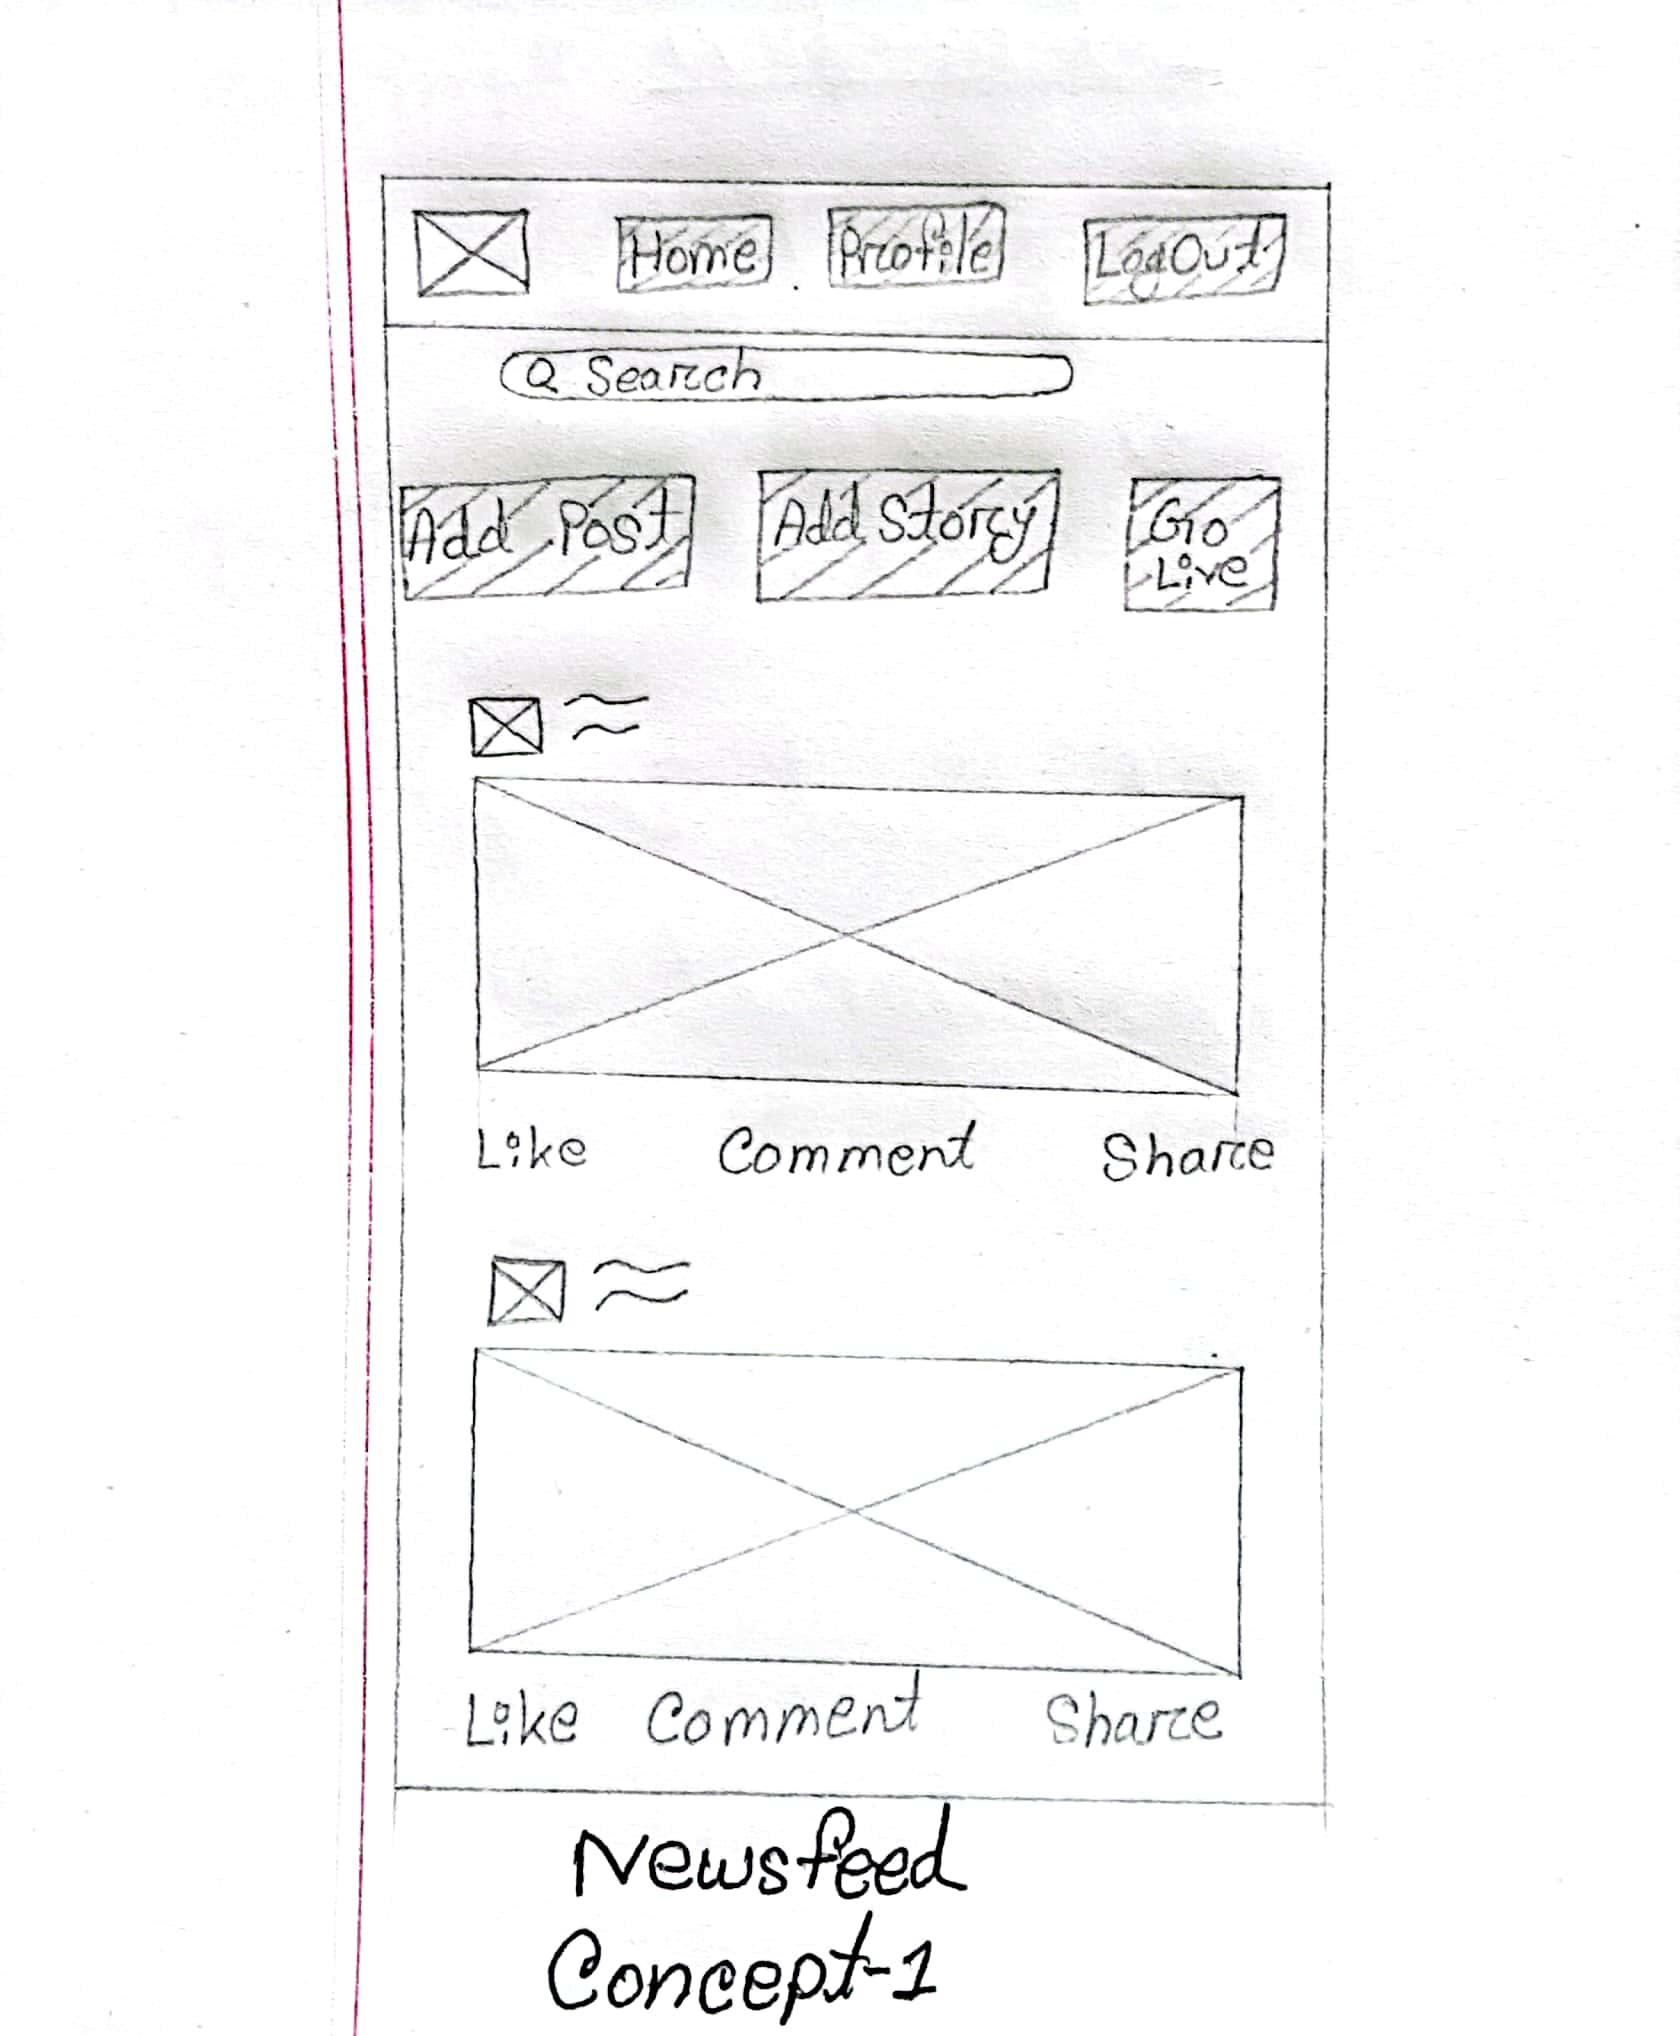 Home Profile LogOut
Search
Add Post Add Story Go
Live
Like Comment Share
Like Comment Share
Newsfeed
Concept-1